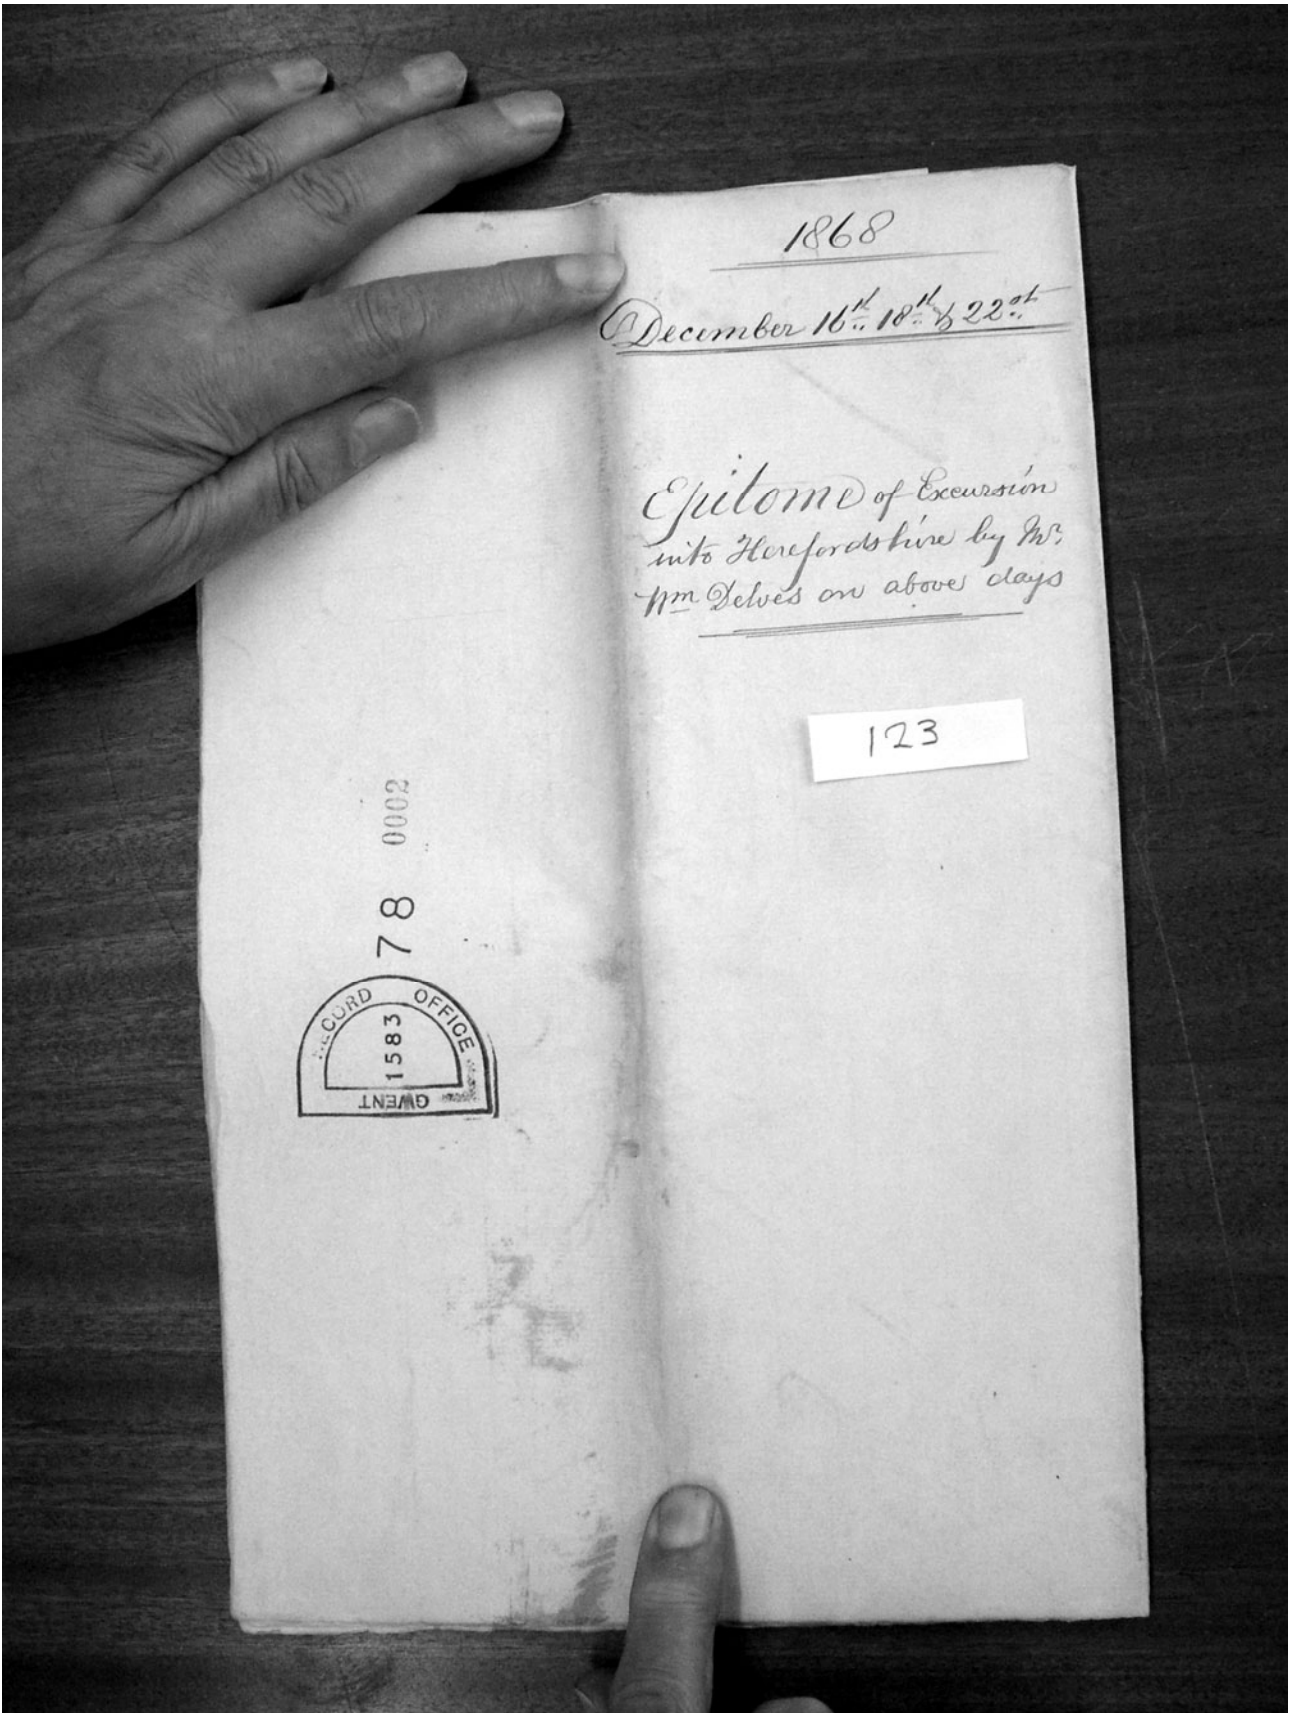 1868
December 16th 18th & 22nd
Epitome of Excursion
into Herefordshire by Mr.
Wm Delves on above days
123
78 0002
RECORD OFFICE
1583
GWENT